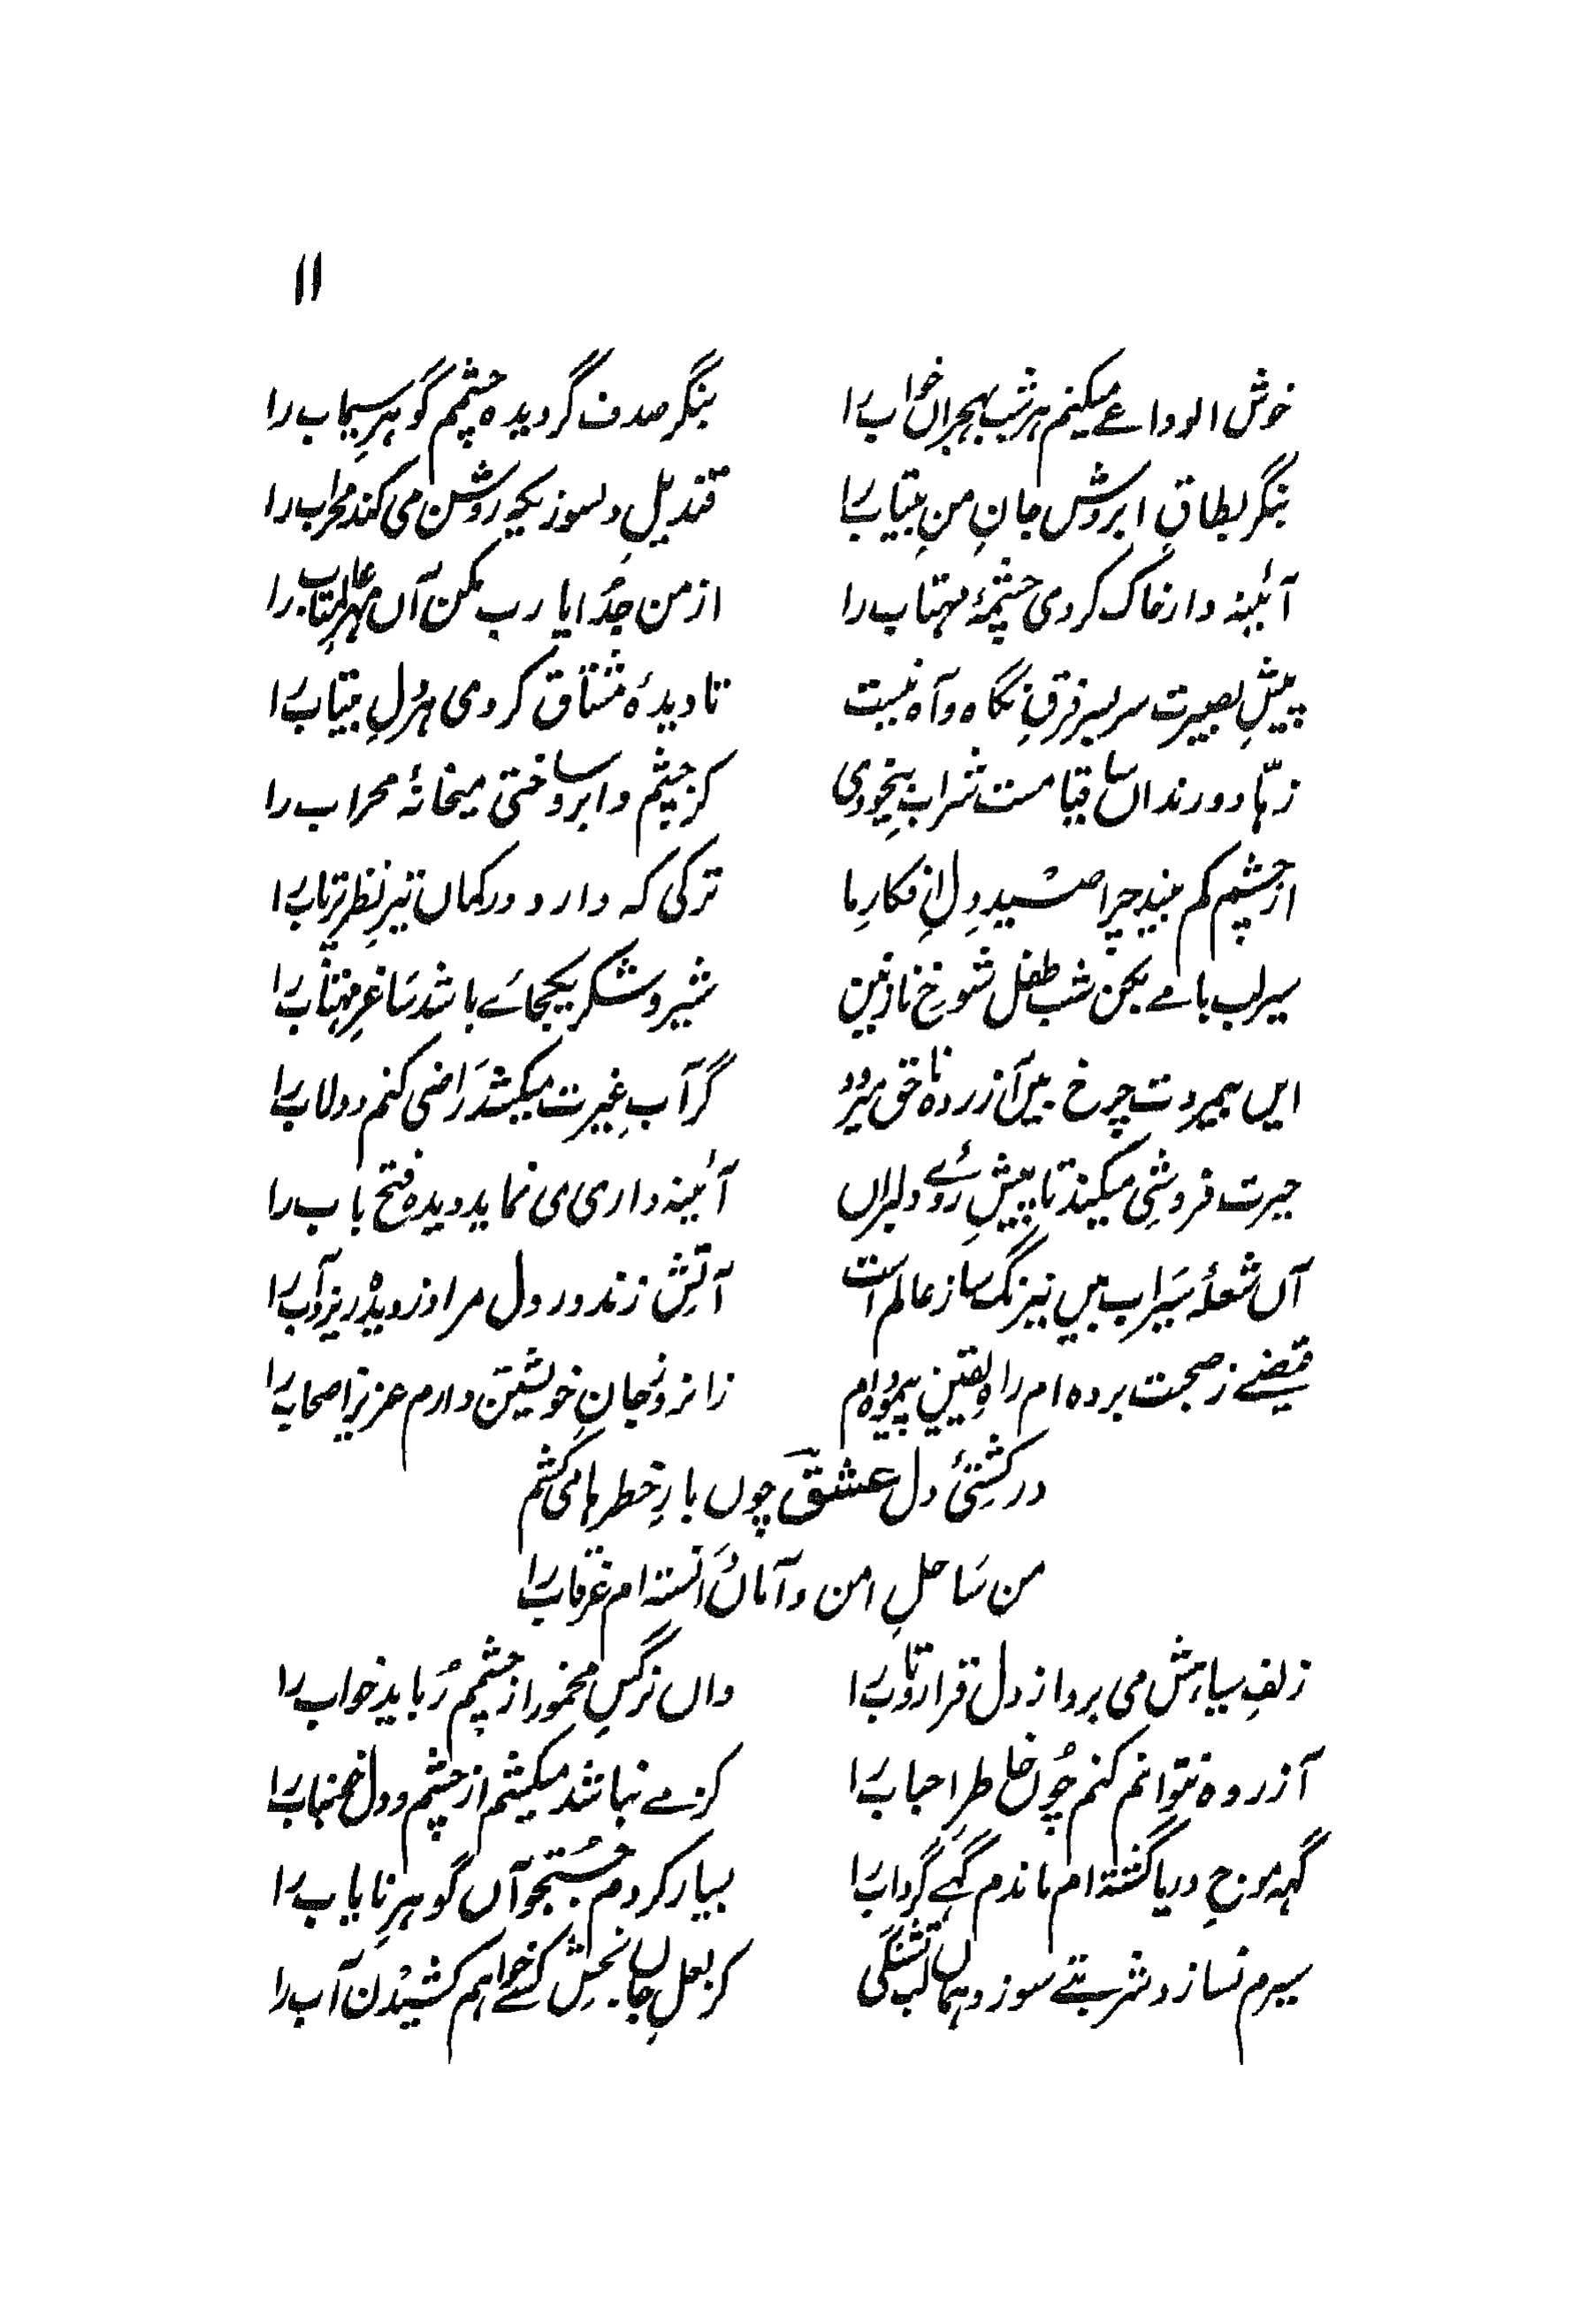 ۱۱
خوش الوداعے میکنم ہر شب ہجراں خواب را بنگر صدف گردیدہ چشمم گوہرِ سیماب را
بنگر بطاقِ ابروش جانِ منِ بیتاب را قندیلِ دلسوزیکہ روشن می کند محراب را
آئینہ دار خاک کردی چشمۂ مہتاب را از من جُدا یا رب مکن آں مہرِ عالمتاب را
پیشِ بصیرت سربسر فرقِ نگاہ و آہ نیست نادیدہ مشتاق کردی ہر دلِ بیتاب را
زہّاد و رنداں ساقیا مست شرابِ بیخودی کز چشم و ابرو ساختی میخانۂ محراب را
از چشم کم بیند چرا صیدِ دلِ افکارِ ما ترکی کہ دارد در کماں تیرِ نظر پرتاب را
سیر لب بامے بکن شب طفل شوخِ نازنین شیر و شکر یکجائے باشد ساغرِ مہتاب را
ایں بیمروت چرخ بیں آزردہ ناحق میرود گر آبِ غیرت میکشد راضی کنم دولاب را
حیرت فروشی میکند تا پیشِ روئے دلبراں آئینہ داری می نماید دیدہ فتح باب را
آں شعلۂ سیراب بیں نیرنگ ساز عالم است آتش زند در دل مرا وز دیدہ ریزد آب را
فیضے ز صحبت بردہ ام راہِ یقین پیمودہ ام زانرو ز جانِ خویشتن دارم عزیز اصحاب را
در کشتیٔ دل عشقؔ چوں بارِ خطرہا می کشم
من ساحلِ امن و آماں دانستہ ام غرقاب را
زلفِ سیاہش می برد از دل قرار و تاب را واں نرگسِ مخمور از چشمم رُباید خواب را
آزردہ نتوانم کنم چوں خاطرِ احباب را گر مے نباشد میکشم از چشم و دل خونناب را
گہہ موجِ دریا گشتہ ام ماندم گہے گرداب را بسیار کردم جُستجو آں گوہرِ نایاب را
سیرم نسازد شربتے سوزد ہماں لب تشنگی کز لعلِ جاں بخش کسے خواہم کشیدن آب را